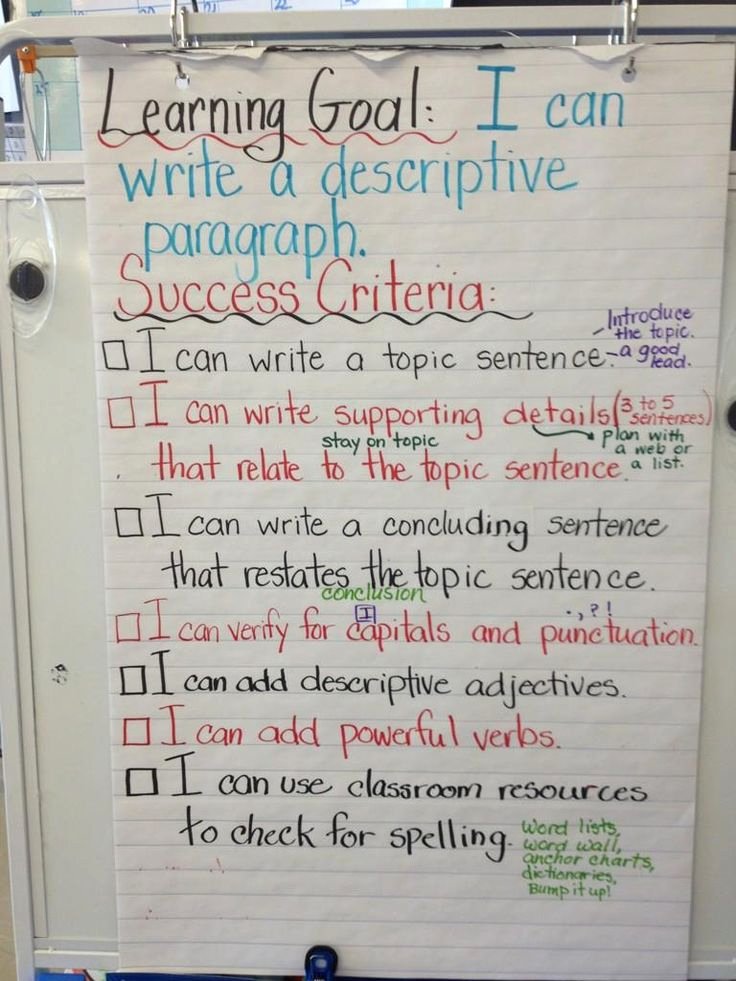 Learning Goal: I can
write a descriptive
paragraph.
Success Criteria:
Introduce
the topic.
I can write a topic sentence. - a good
lead.
I can write supporting details (3 to 5
sentences)
stay on topic
plan with
a web or
that relate to the topic sentence. a list.
I can write a concluding sentence
that restates the topic sentence.
conclusion
I . , ? !
I can verify for capitals and punctuation.
I can add descriptive adjectives.
I can add powerful verbs.
I can use classroom resources
to check for spelling. Word lists,
word wall,
anchor charts,
dictionaries,
Bump it up!